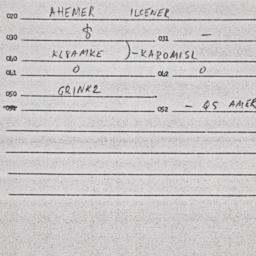 020 AHEMER ILCENER
030 8 031 -
040 KLSAMKE )-KAPOMISL
041 0 042 0
050 GRINK2
052 - QS AMER